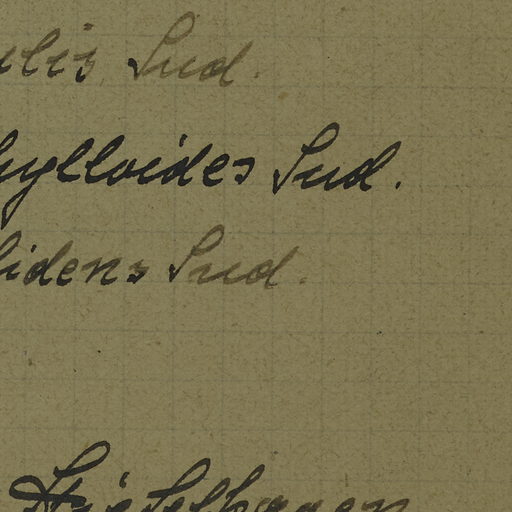 ulis Sud.
hylloides Sud.
lidens Sud.